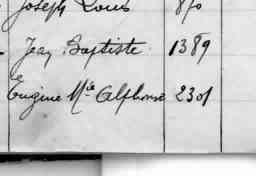 Joseph Louis 870
Jean Baptiste 1389
Eugène Mie Alphonse 2301